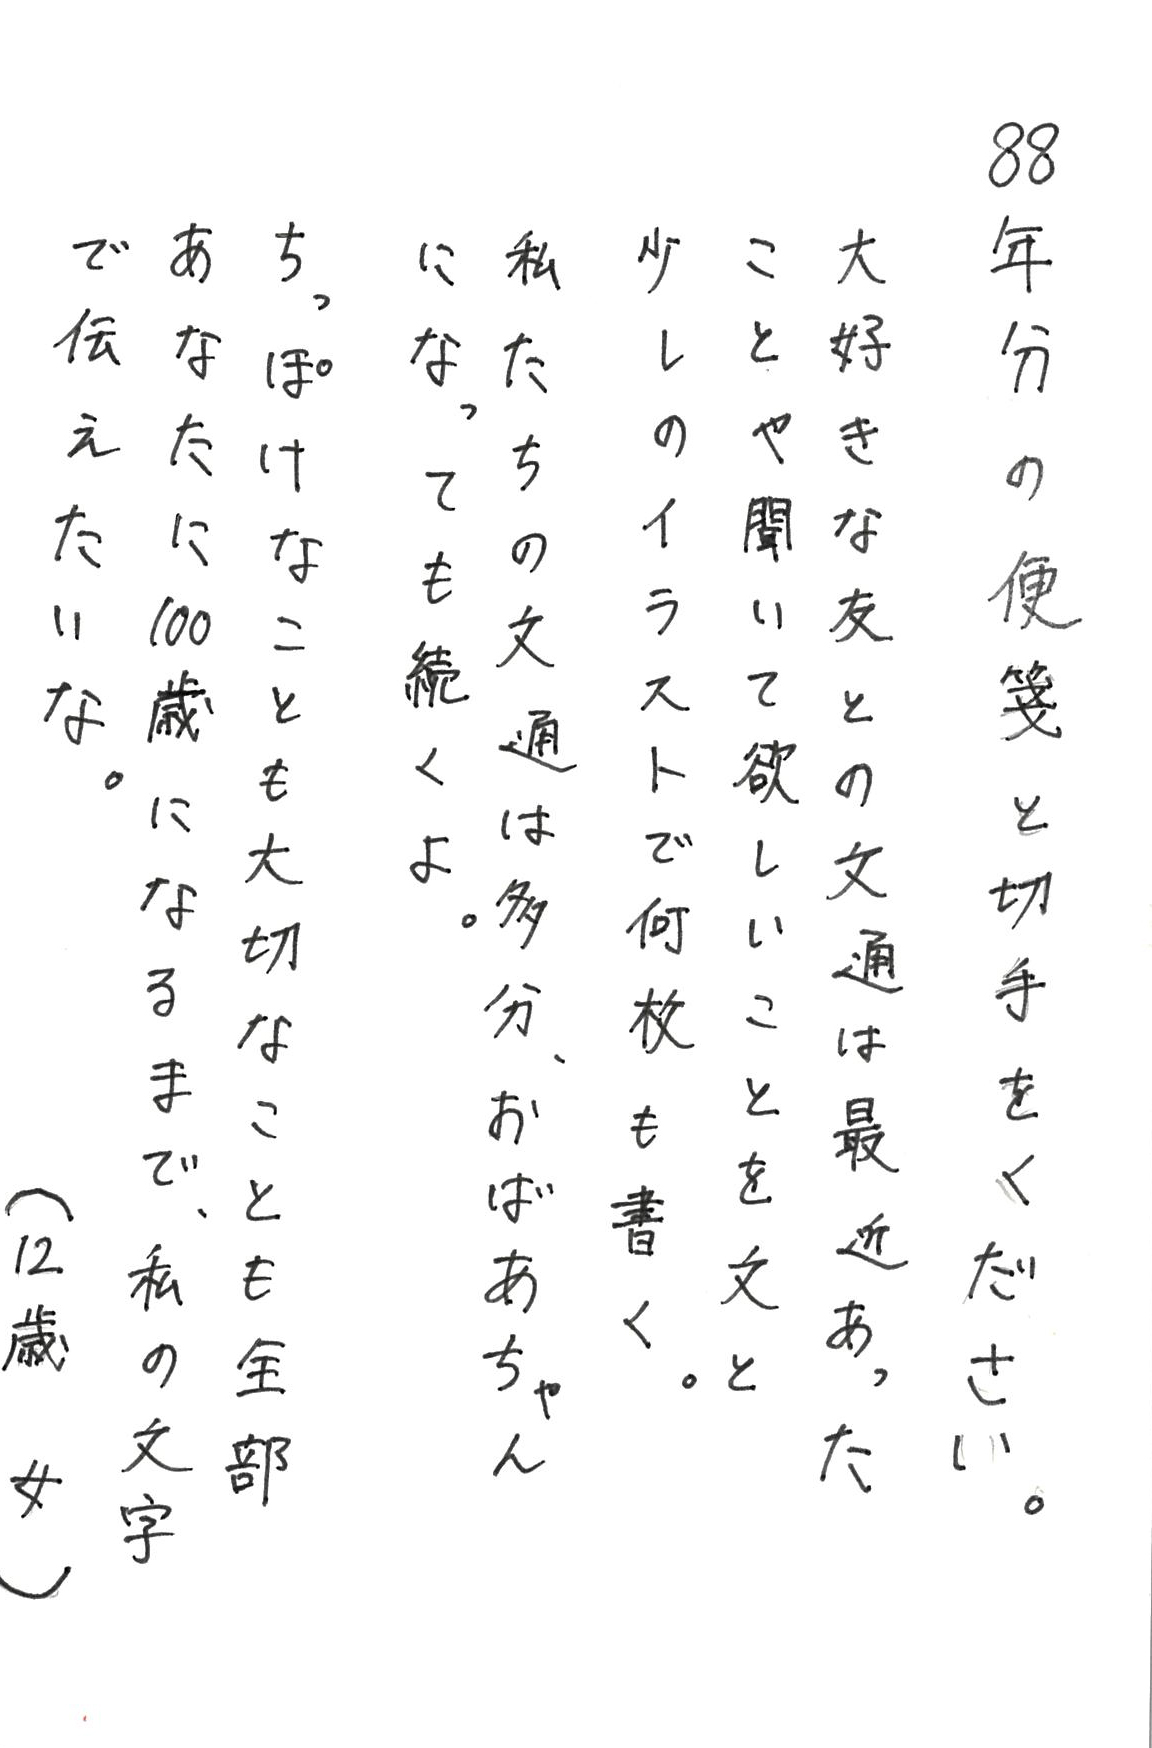 88年分の便箋と切手をください。
大好きな友との文通は最近あった
ことや聞いて欲しいことを文と
少しのイラストで何枚も書く。
私たちの文通は多分、おばあちゃん
になっても続くよ。
ちっぽけなことも大切なことも全部
あなたに100歳になるまで、私の文字
で伝えたいな。
(12歳 女)